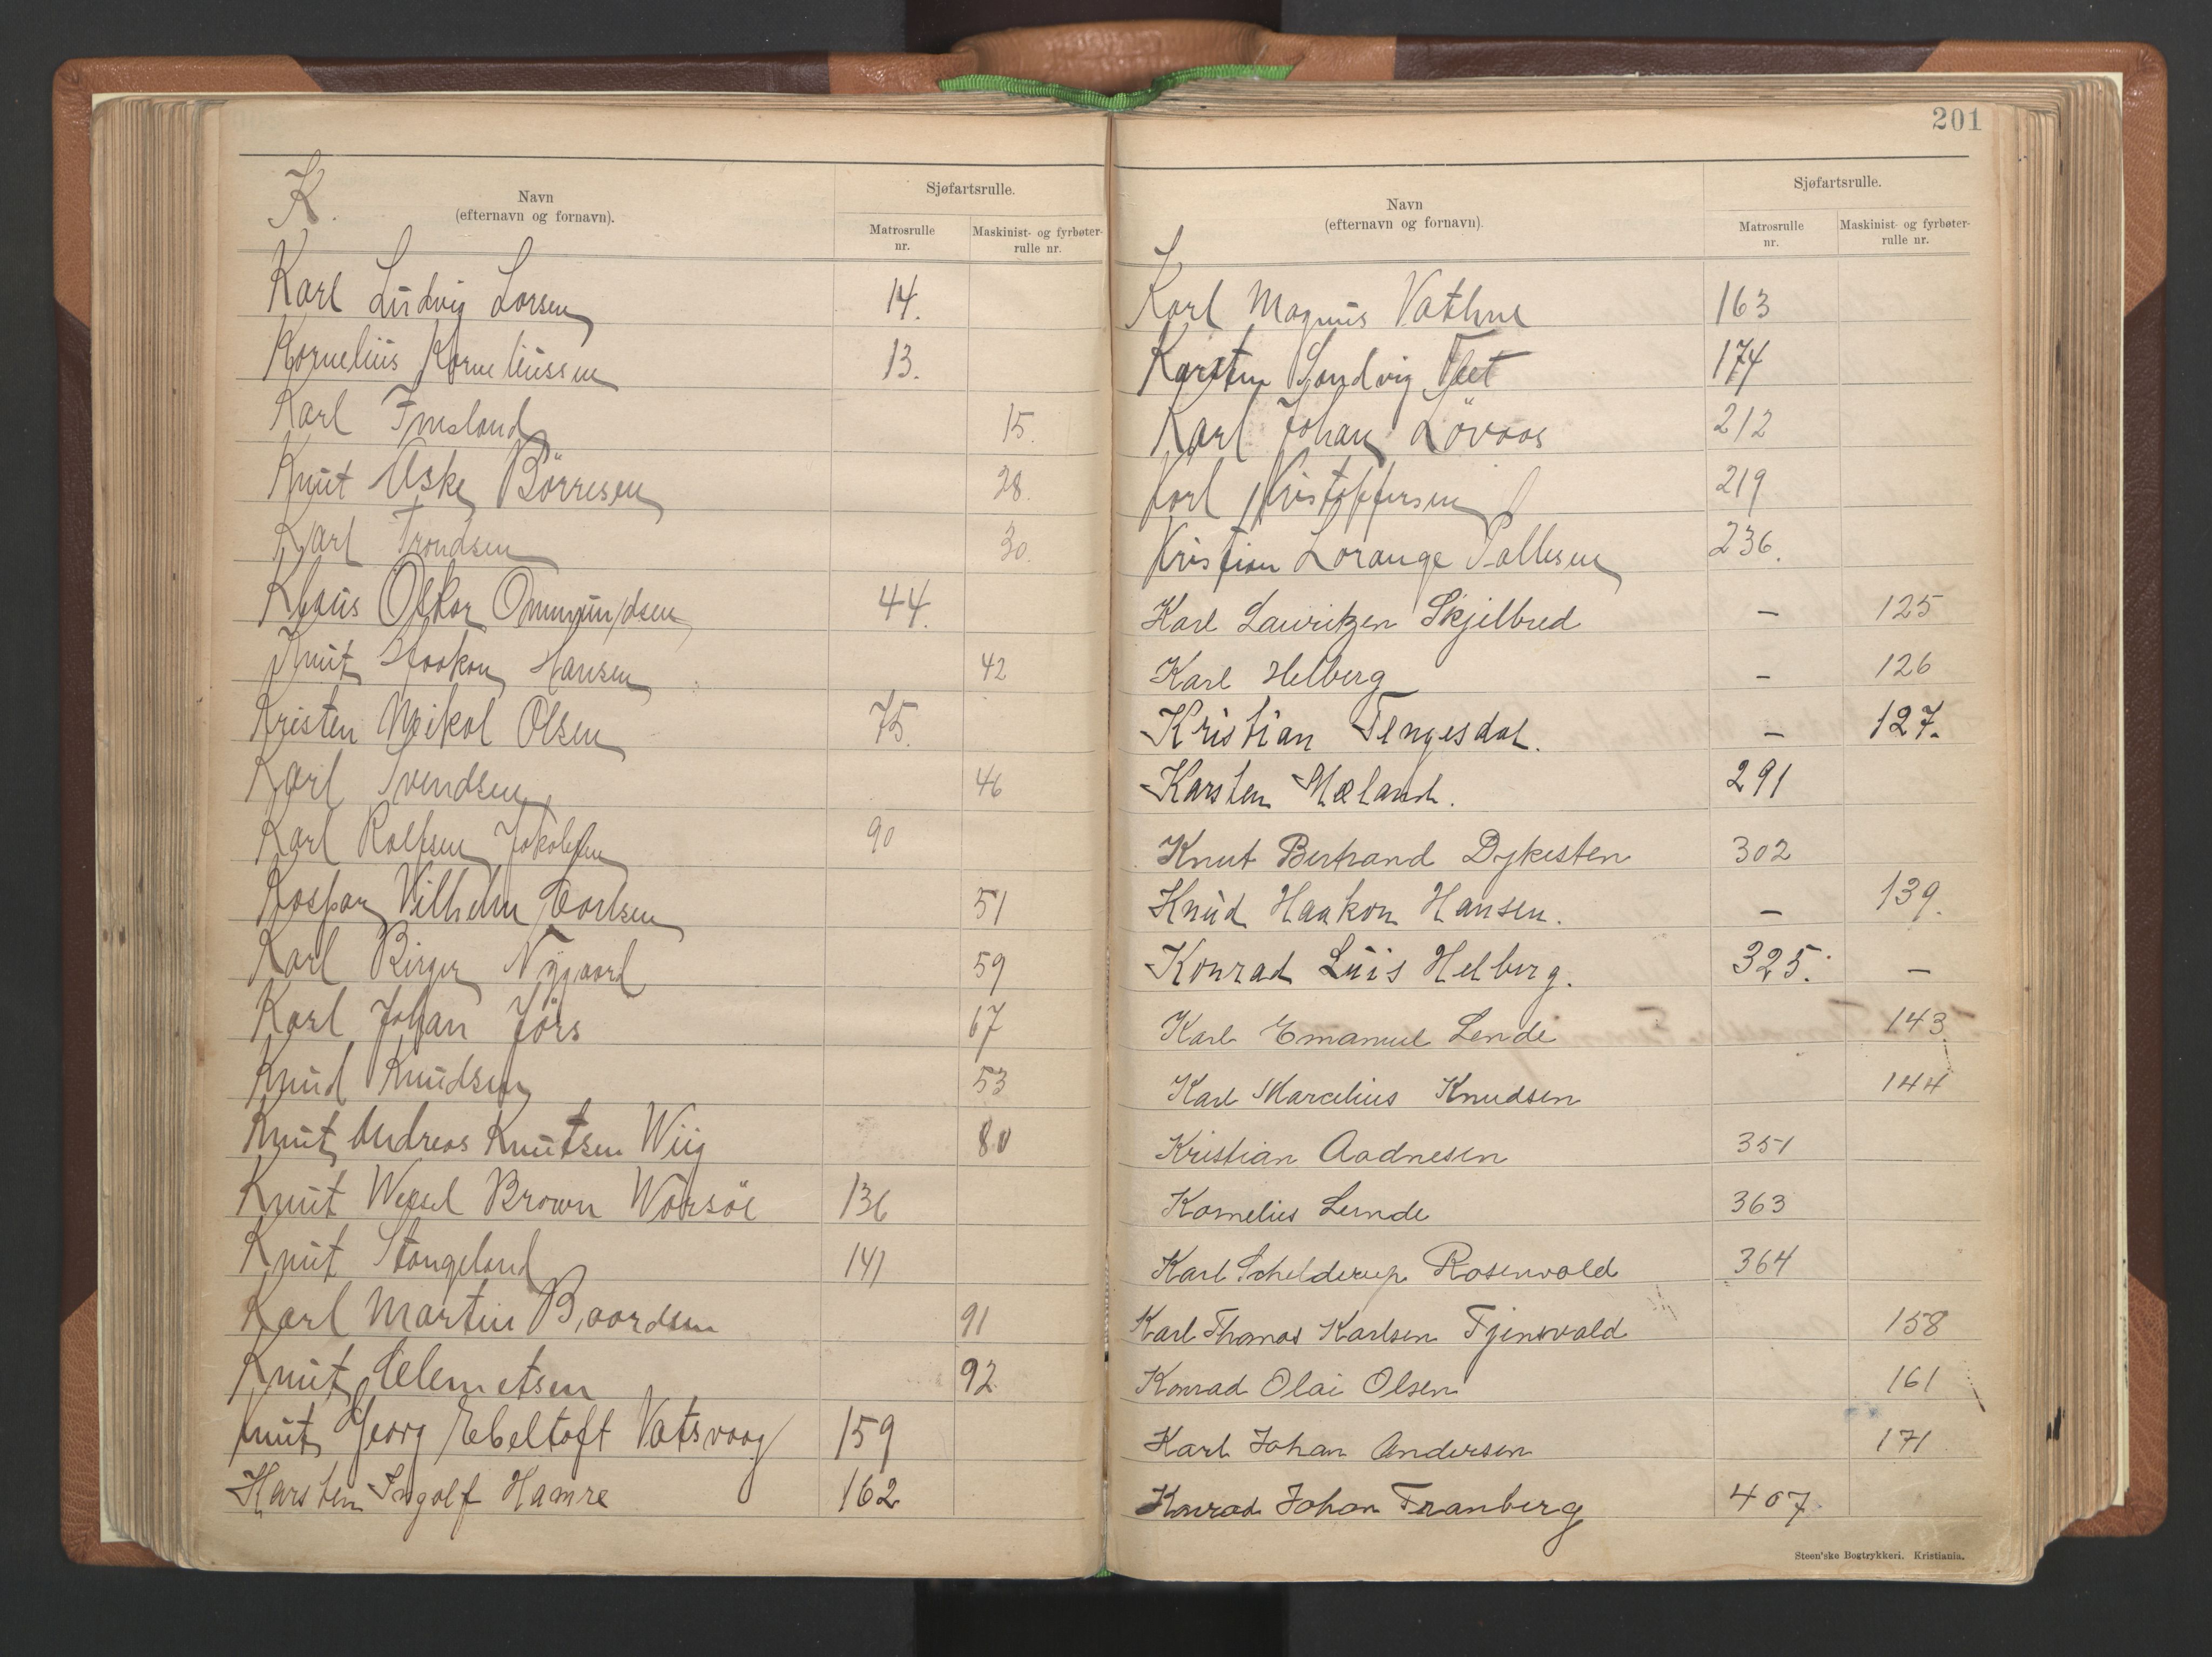 K.
Navn
(efternavn og fornavn).
Sjøfartsrulle.
Matrosrulle
nr.
Maskinist- og fyrbøter-
rulle nr.
Karl Ludvig Larsen 14.
Kornelius Korneliussen 13.
Karl Imsland 15.
Knut Aske Börresen 28.
Karl Trondsen 30.
Klaus Oskar Ommundsen 44.
Knut Haakon Hansen 42
Kristen Meikol Olsen 75.
Karl Svendsen 46
Karl Rolfsen Jakobsen 90
Kaspar Vilhelm Carlsen 51
Karl Birger Nygaard 59
Karl Johan Jörs 67
Knud Knudsen 53
Knut Andreas Knutsen Wiig 80
Knut Wessel Brown Worsöe 136
Knut Stangeland 141
Karl Martin Baardsen 91
Knut Clemetsen 92
Knut Georg Ebeltoft Vatsvaag 159
Karsten Ingolf Hamre 162
201
Navn
(efternavn og fornavn).
Sjøfartsrulle.
Matrosrulle
nr.
Maskinist- og fyrbøter-
rulle nr.
Karl Magnus Vathne 163
Karsten Sandvig Tveit 174
Karl Johan Lövaas 212
Karl Kristoffersen 219
Kristian Lorange Pallesen 236.
Karl Lauritzen Skjelbred – 125
Karl Helberg – 126
Kristian Tengesdal. – 127.
Karsten Mæland. 291
Knut Bertrand Dykesten 302
Knud Haakon Hansen. – 139.
Konrad Luis Helberg. 325. –
Karl Emanuel Lende 143
Karl Marcelius Knudsen 144
Kristian Aadnesen 351
Kornelius Lunde 363
Karl Schelderup Rosenvold 364
Karl Thomas Karlsen Tjensvold 158
Konrad Olai Olsen 161
Karl Johan Andersen 171
Konrad Johan Tranberg 407.
Steen'ske Bogtrykkeri. Kristiania.